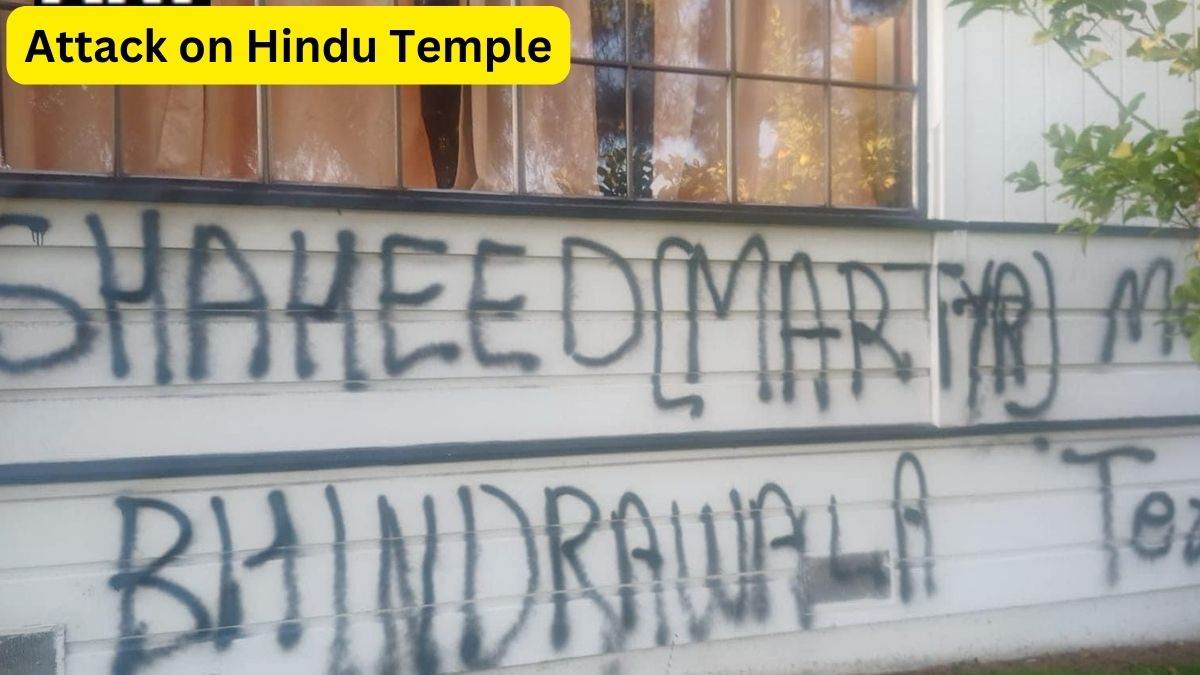 Attack on Hindu Temple
SHAHEED [MARTYR) M
BHINDRAWALA Te